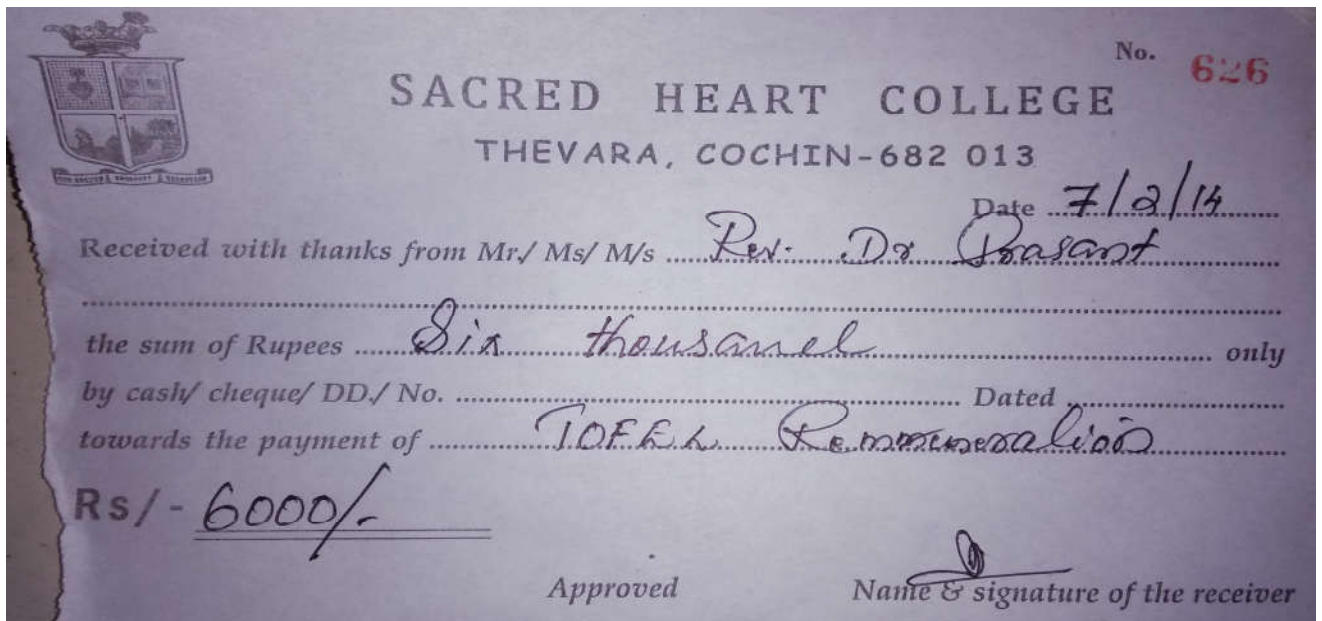 No. 626
SACRED HEART COLLEGE
THEVARA, COCHIN-682 013
Date 7/2/14
Received with thanks from Mr./ Ms/ M/s Rev. Dr Prasant
the sum of Rupees Six thousand only
by cash/ cheque/ DD./ No. Dated
towards the payment of TOFEL Remmuneration
Rs/- 6000/-
Approved Name & signature of the receiver